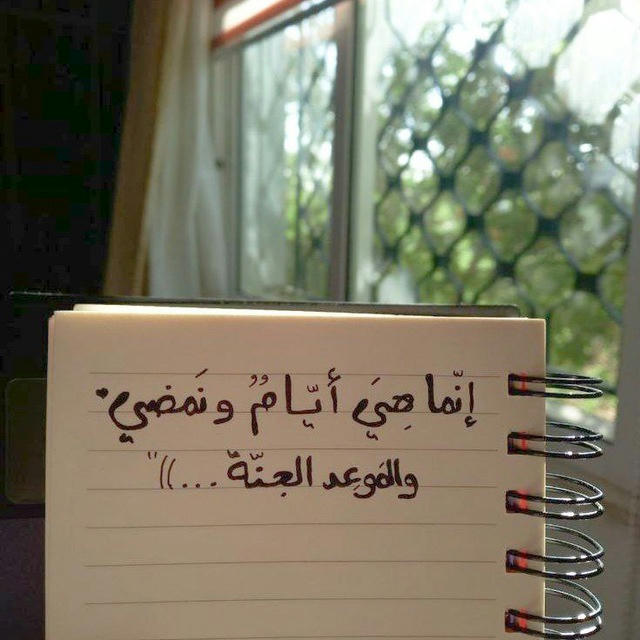 إنّما هِيَ أيّامٌ ونَمضي.
والمَوعِد الجنّةَ...))"